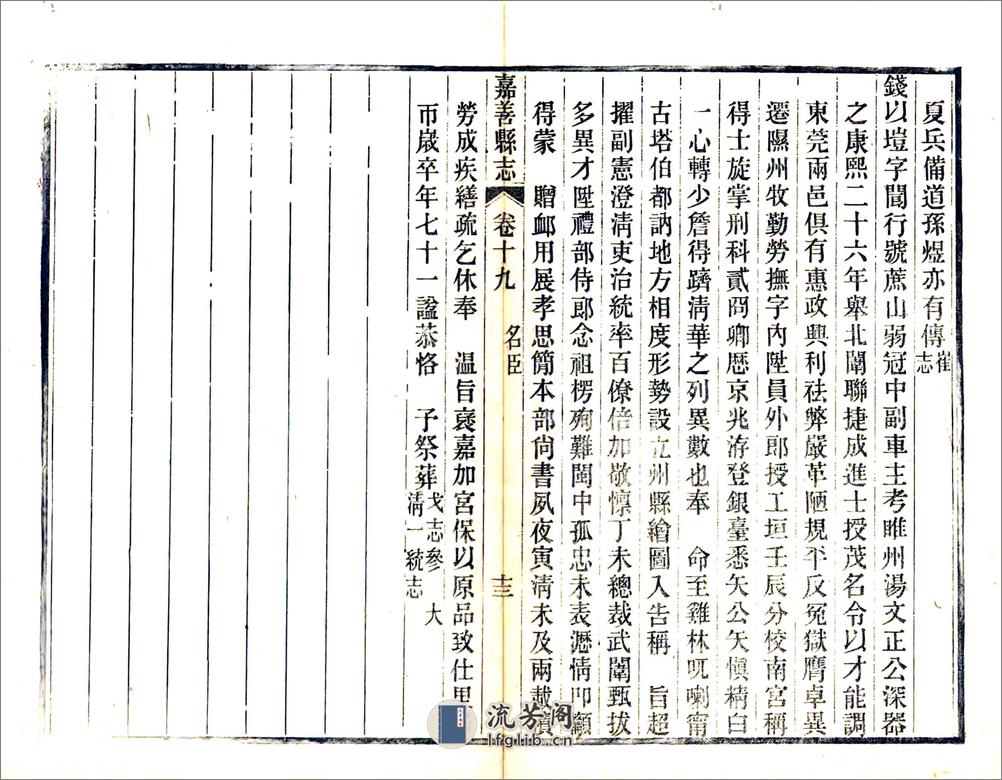 夏兵備道孫煜亦有傳崔志
錢以塏字閶行號蔗山弱冠中副車主考睢州湯文正公深器
之康熙二十六年舉北闈聯捷成進士授茂名令以才能調
東莞兩邑俱有惠政興利祛弊嚴革陋規平反冤獄膺卓異
遷隰州牧勤勞撫字內陞員外郎授工垣壬辰分校南宮稱
得士旋掌刑科貳冏卿歷京兆洊登銀臺悉矢公矢愼精白
一心轉少詹得躋淸華之列異數也奉　命至雞林吼喇甯
古塔伯都訥地方相度形勢設立州縣繪圖入告稱　旨超
擢副憲澄淸吏治統率百僚倍加敬懍丁未總裁武闈甄拔
多異才陞禮部侍郎念祖楞殉難閩中孤忠未表瀝情叩籲
得蒙　贈卹用展孝思簡本部尙書夙夜寅淸未及兩載
嘉善縣志　卷十九　名臣　十三
勞成疾繕疏乞休奉　溫旨襃嘉加宮保以原品致仕里
帀歲卒年七十一諡恭恪　予祭葬戈志參大淸一統志
流芳阁
lfglib.cn